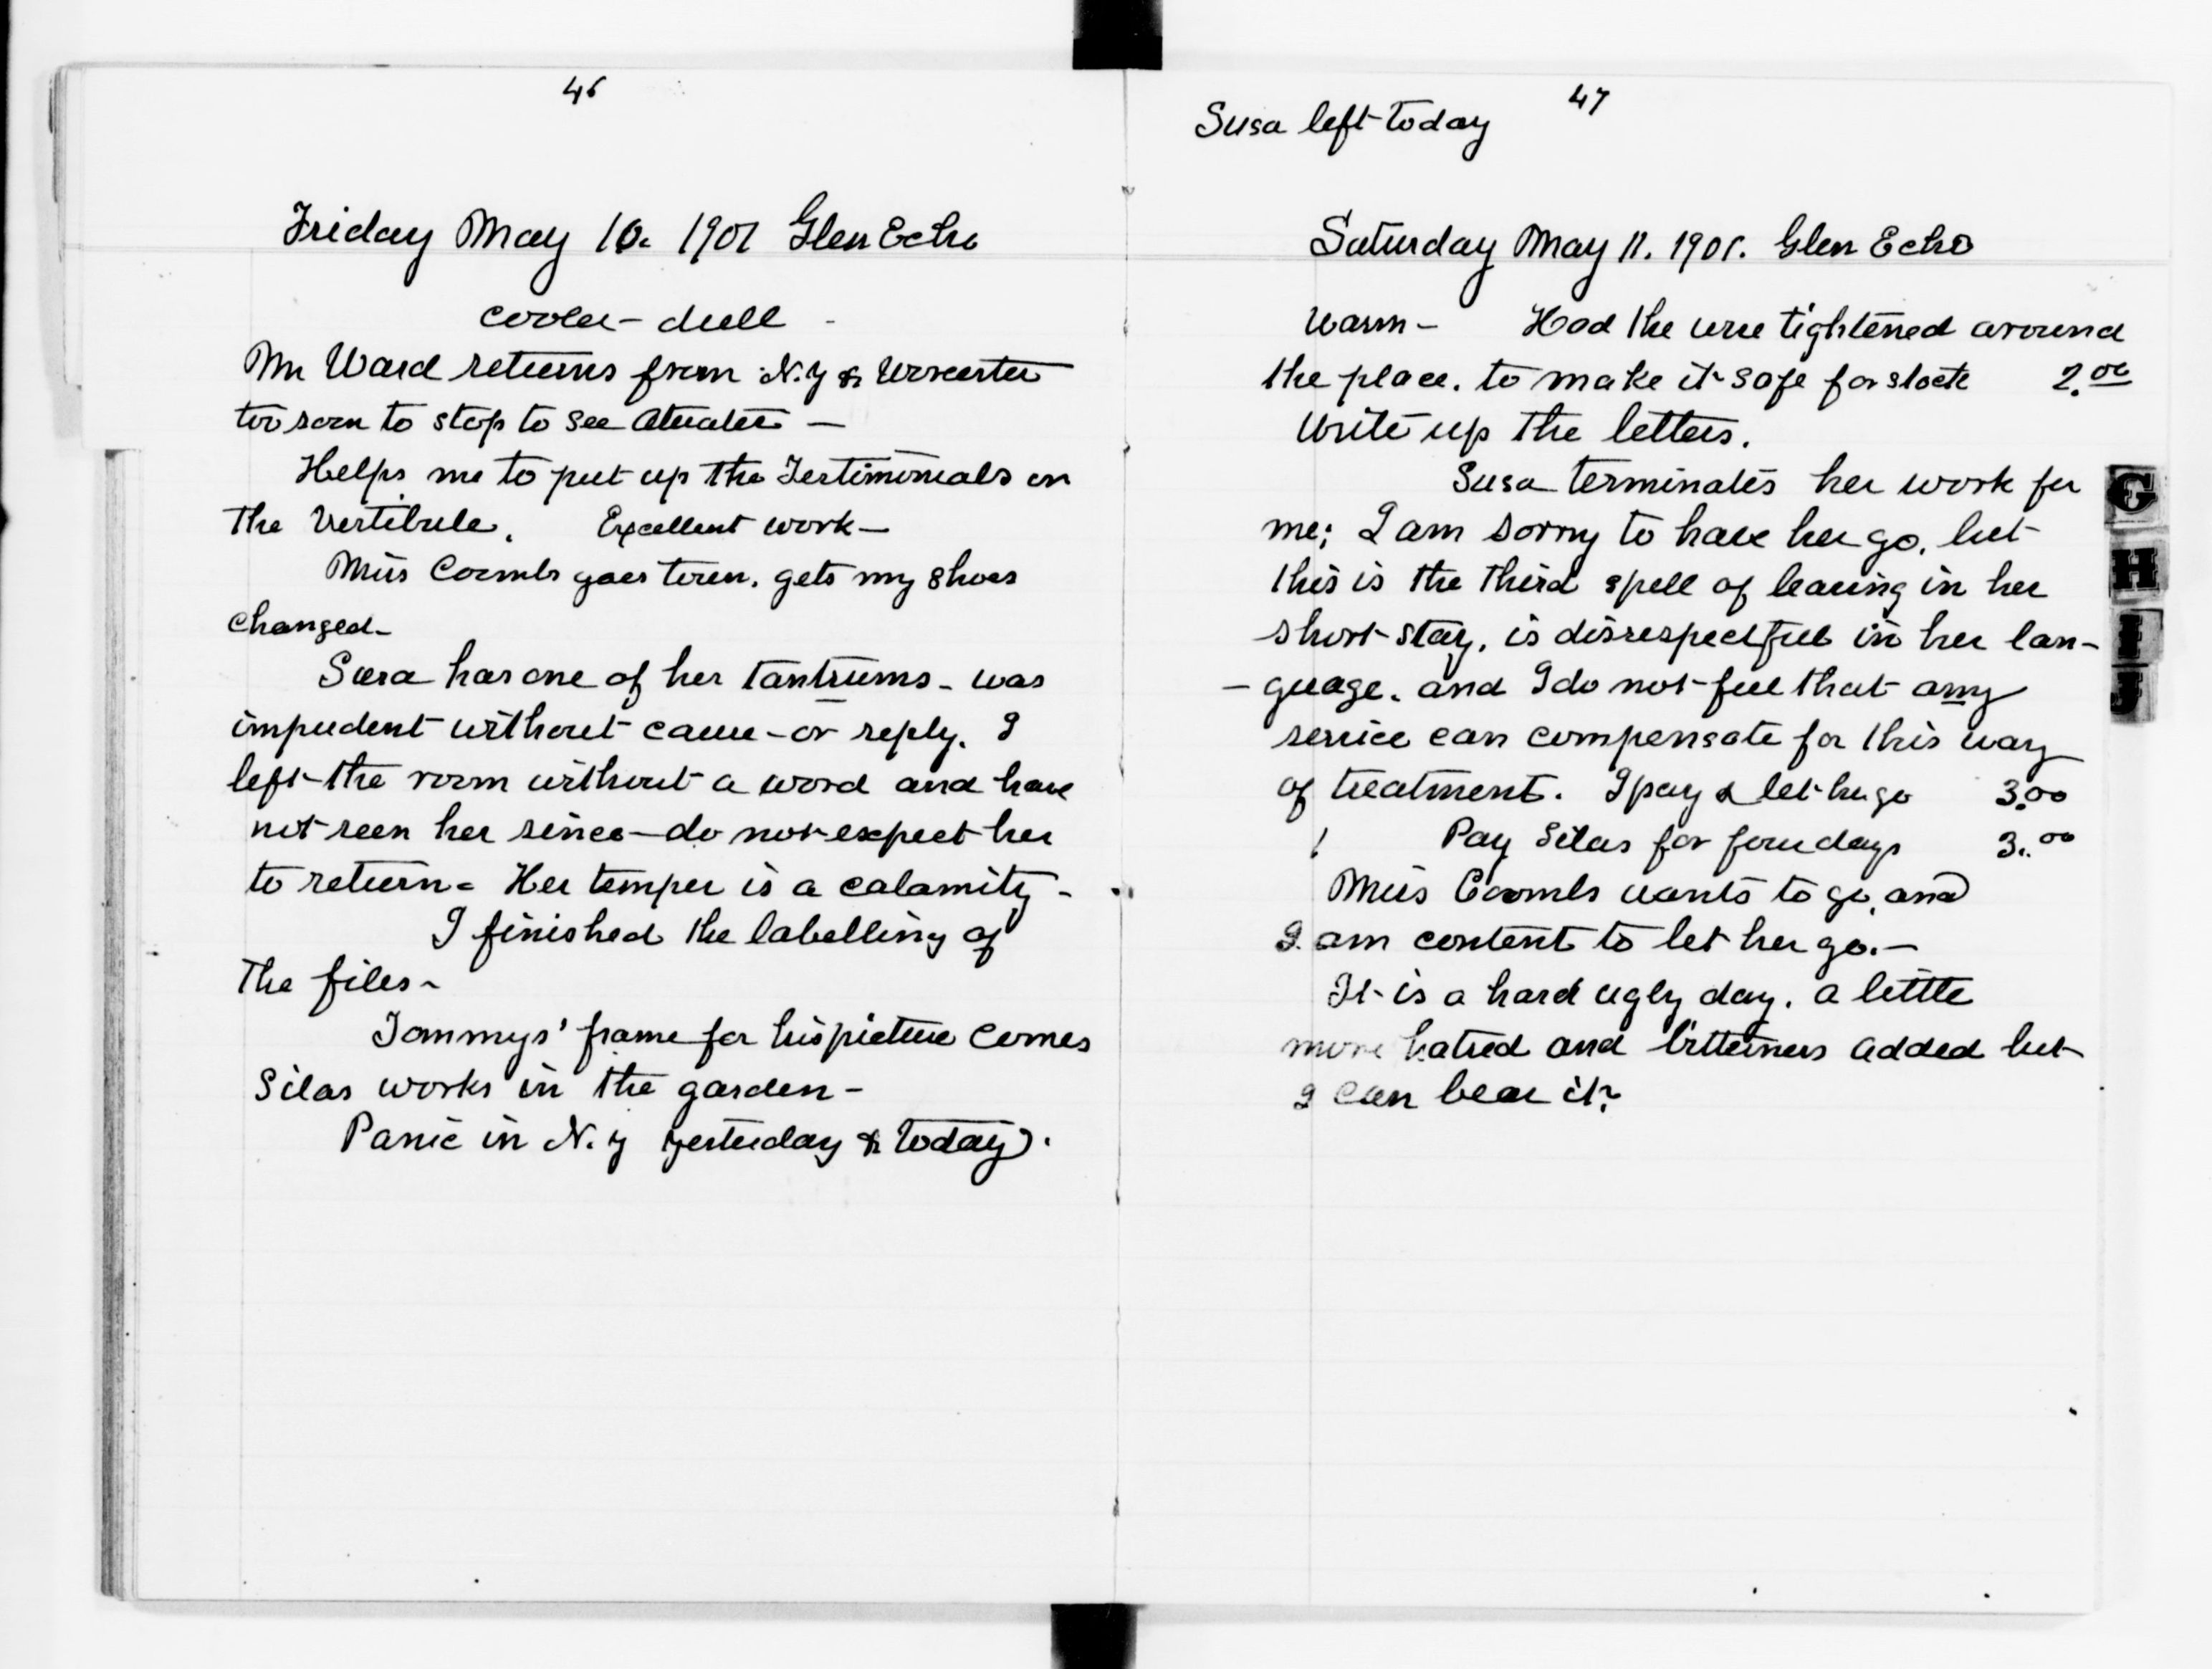 46
Friday May 10. 1901 Glen Echo
cooler - dull -
Mr Ward returns from N.Y & Worcester
too soon to stop to see Atwater —
Helps me to put up the Testimonials in
the Vestibule. Excellent work —
Miss Coombs goes town. gets my shoes
changed -
Susa has one of her tantrums - was
impudent without cause - or reply. I
left the room without a word and have
not seen her since - do not expect her
to return - Her temper is a calamity -
I finished the labelling of
the files -
Tommys' frame for his picture comes
Silas works in the garden -
Panic in N.Y yesterday & today.
47
Susa left today
Saturday May 11. 1901. Glen Echo
Warm - Had the wire tightened around
the place. to make it safe for stock 2.00
Write up the letters.
Susa terminates her work for
me; I am sorry to have her go. but
this is the third spell of leaving in her
short stay. is disrespectful in her lan-
- guage. and I do not feel that any
service can compensate for this way
of treatment. I pay & let her go 3.00
Pay Silas for four days 3.00
Miss Coombs wants to go, and
I am content to let her go. —
It is a hard ugly day. a little
more hatred and bitterness added but
I can bear it.
G
H
I
J